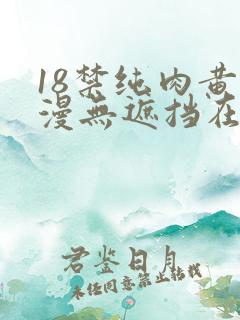 18禁纯肉黄
漫無遮挡在
君鉴日月
未任同意禁止转载